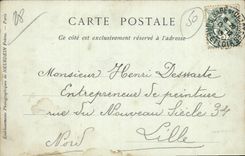 CARTE POSTALE
Ce côté est exclusivement réservé à l'adresse
Monsieur Henri Dessarte
Entrepreneur de peinture
rue du Nouveau Siècle 34
Lille
Nord
Etablissements Photographiques de NEURDEIN Frères. — Paris